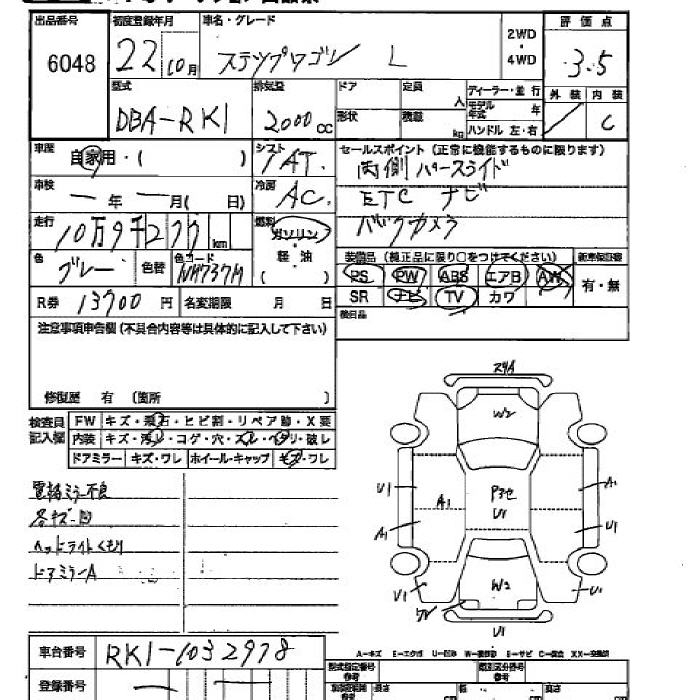 出品番号
初度登録年月
車名・グレード
2WD
4WD
評価点
6048
22 10月
ステップワゴン L
3.5
型式
排気量
ドア
定員
人
ディーラー・並 行
モデル年式 年
外装
内装
DBA-RK1
2000cc
形状
積載
kg
ハンドル 左・右
C
車歴
自家用・( )
シフト
IAT.
セールスポイント (正常に機能するものに限ります)
両側パワースライド
車検
年 月( 日)
冷房
AC
ETC ナビ
走行
10万9千277km
燃料
ガソリン
軽油
( )
バックカメラ
色
グレー
色替
色コード
NH737M
装備品 (純正品に限り○をつけてください)
新車保証書
PS PW ABS エアB AW
有・無
R券
13700円
名変期限 月 日
SR ナビ TV カワ
検目品
注意事項申告欄(不具合内容等は具体的に記入して下さい)
修復歴 有 (箇所 )
検査員記入欄
FW キズ・飛石・ヒビ割・リペア跡・X要
内装 キズ・汚れ・コゲ・穴・スレ・ヘタリ・破レ
ドアミラー キズ・ワレ ホイール・キャップ キズ・ワレ
電格ミラー不良
各キズ・凹
ヘッドライトくもり
ドアミラーA
W2
U1
A1
A1
U1
A1
U1
U1
U1
W2
U1
U1
車台番号
RK1-1032978
登録番号
A…キズ E…エクボ U…凹み W…補修跡 S…サビ C…腐食 XX…交換済
型式指定番号
参考
類別区分番号
参考
長さ
幅
高さ